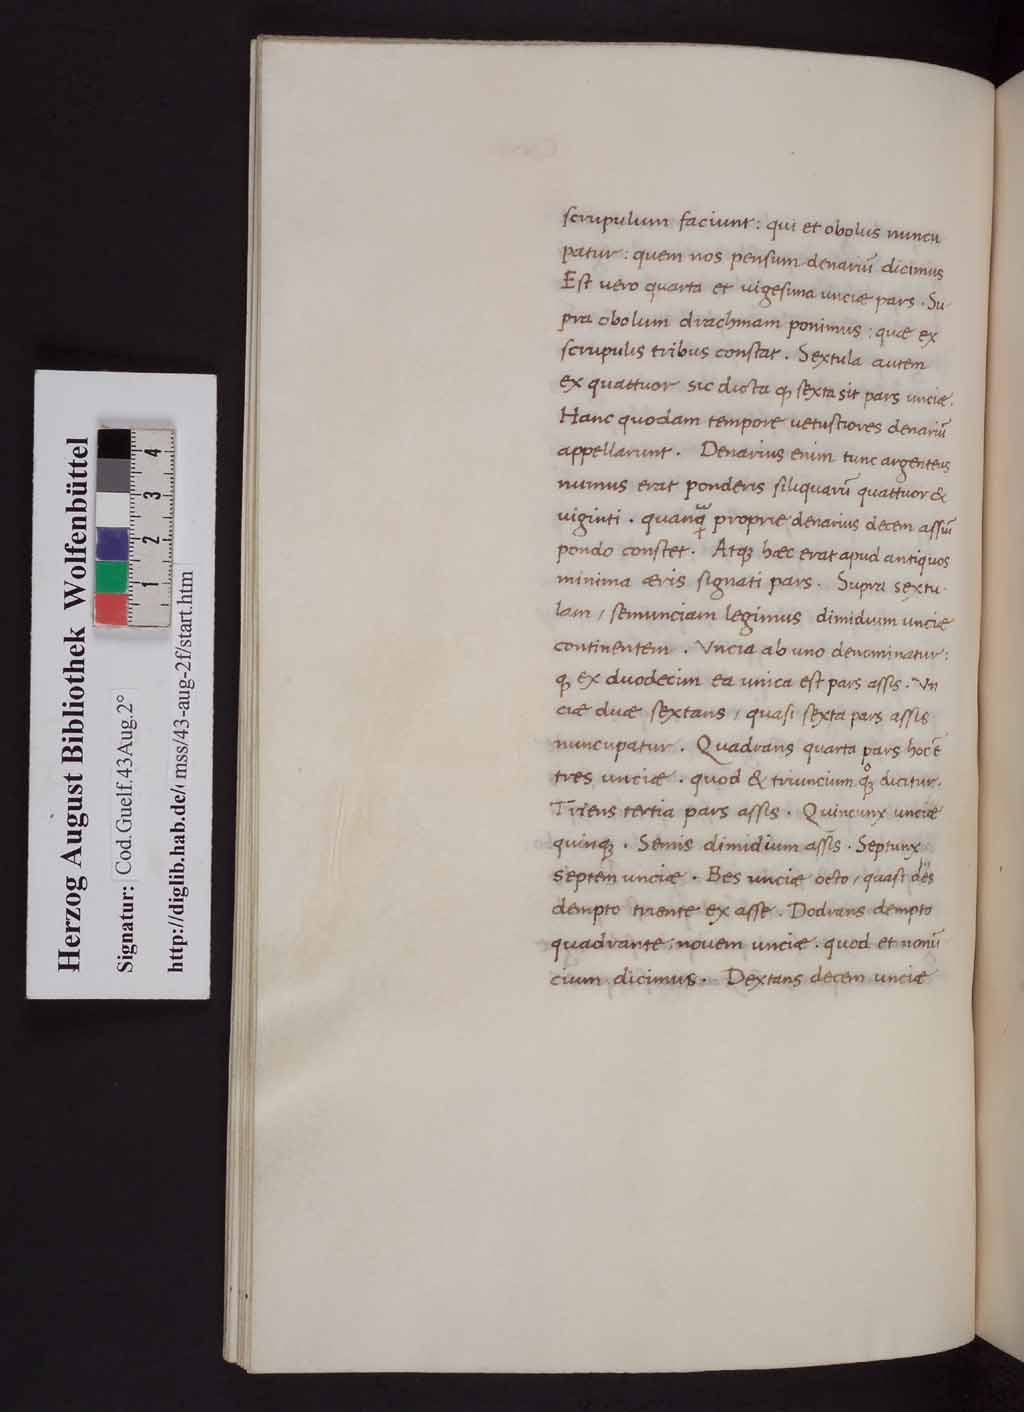 Herzog August Bibliothek Wolfenbüttel
Signatur: Cod.Guelf.43Aug.2°
http://diglib.hab.de/mss/43-aug-2f/start.htm
1 2 3 4
ſcrupulum faciunt: qui et obolus nuncu
patur: quem nos penſum denariū dicimus
Eſt vero quarta et uigeſima unciæ pars. Su-
pra obolum drachmam ponimus: quæ ex
ſcrupulis tribus conſtat. Sextula autem
ex quattuor sic dicta ꝙ ſexta sit pars unciæ.
Hanc quodam tempore uetuſtiores denariū
appellarunt. Denarius enim tunc argenteus
numus erat ponderis ſiliquarū quattuor &
uiginti. quanꝗ̃ proprie denarius decem aſſiū
pondo conſtet. Atqꝫ hæc erat apud antiquos
minima æris ſignati pars. Supra sextu-
lam / ſemunciam legimus dimidium unciæ
continentem. Vncia ab uno denominatur:
ꝙ ex duodecim ea unica eſt pars aſſis. Vn
ciæ duæ ſextans / quaſi ſexta pars aſſis
nuncupatur. Quadrans quarta pars hoc ē
tres unciæ. quod & triuncium qꝫ̊ dicitur.
Triens tertia pars aſſis. Quincunx unciæ
quinqꝫ. Semis dimidium aſſis. Septunx
septem unciæ. Bes unciæ octo / quaſi des
dempto triente ex aſſe. Dodrans dempto
quadrante: nouem unciæ. quod et nonū
cium dicimus. Dextans decem unciæ